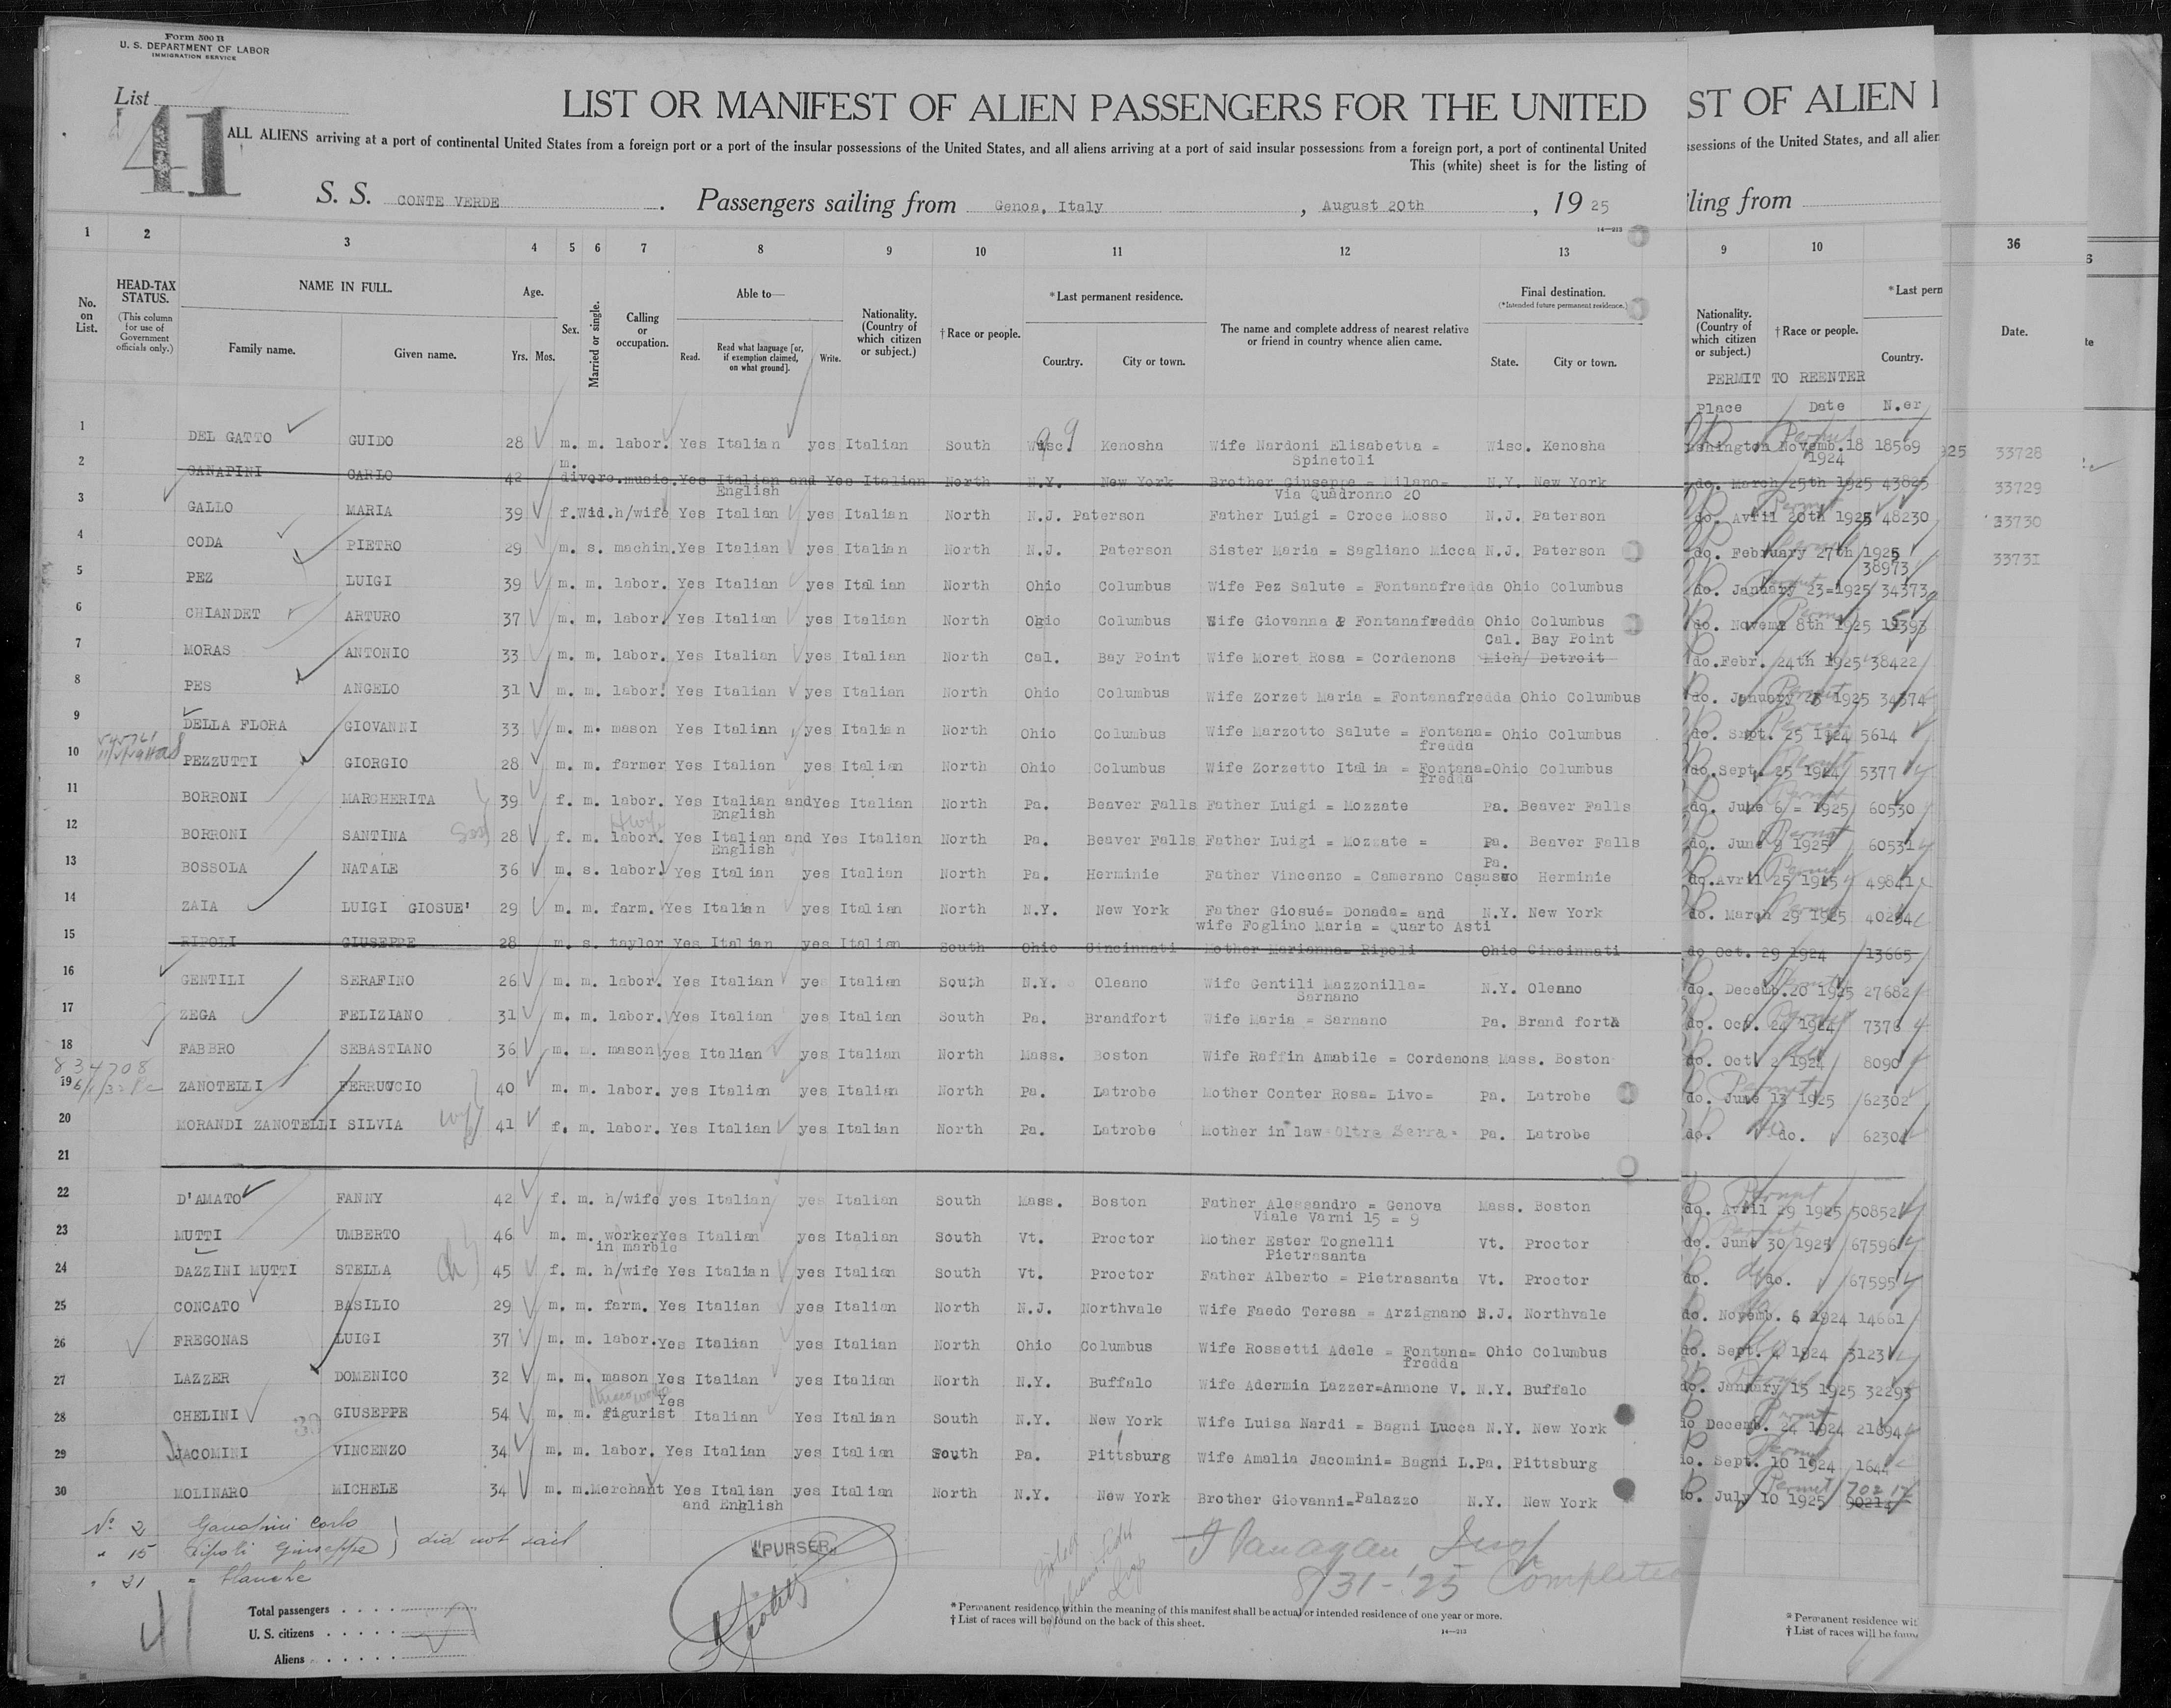 Form 500 B
U. S. DEPARTMENT OF LABOR
IMMIGRATION SERVICE
List
41
LIST OR MANIFEST OF ALIEN PASSENGERS FOR THE UNITED
ALL ALIENS arriving at a port of continental United States from a foreign port or a port of the insular possessions of the United States, and all aliens arriving at a port of said insular possessions from a foreign port, a port of continental United
This (white) sheet is for the listing of
S. S. CONTE VERDE. Passengers sailing from Genoa, Italy, August 20th, 19 25
14—213
1 2 3 4 5 6 7 8 9 10 11 12 13
No. on List.
HEAD-TAX STATUS.
(This column for use of Government officials only.)
NAME IN FULL.
Family name. Given name.
Age.
Yrs. Mos.
Sex.
Married or single.
Calling or occupation.
Able to—
Read. Read what language [or, if exemption claimed, on what ground]. Write.
Nationality. (Country of which citizen or subject.)
† Race or people.
* Last permanent residence.
Country. City or town.
The name and complete address of nearest relative or friend in country whence alien came.
Final destination.
(* Intended future permanent residence.)
State. City or town.
1 DEL GATTO GUIDO 28 m. m. labor. Yes Italian yes Italian South Wisc. Kenosha Wife Nardoni Elisabetta = Spinetoli Wisc. Kenosha
2 CANAPINI CARLO 42 m. divorc. music. Yes Italian and English Yes Italian North N.Y. New York Brother Giuseppe = Milano= Via Quadronno 20 N.Y. New York
3 GALLO MARIA 39 f. Wid. h/wife Yes Italian yes Italian North N.J. Paterson Father Luigi = Croce Mosso N.J. Paterson
4 CODA PIETRO 29 m. s. machin. Yes Italian yes Italian North N.J. Paterson Sister Maria = Sagliano Micca N.J. Paterson
5 PEZ LUIGI 39 m. m. labor. Yes Italian yes Italian North Ohio Columbus Wife Pez Salute = Fontanafredda Ohio Columbus
6 CHIANDET ARTURO 37 m. m. labor. Yes Italian yes Italian North Ohio Columbus Wife Giovanna P Fontanafredda Ohio Columbus
7 MORAS ANTONIO 33 m. m. labor. Yes Italian yes Italian North Cal. Bay Point Wife Moret Rosa = Cordenons Cal. Bay Point Mich/ Detroit
8 PES ANGELO 31 m. m. labor. Yes Italian yes Italian North Ohio Columbus Wife Zorzet Maria = Fontanafredda Ohio Columbus
9 DELLA FLORA GIOVANNI 33 m. m. mason Yes Italian yes Italian North Ohio Columbus Wife Marzotto Salute = Fontana= fredda Ohio Columbus
10 PEZZUTTI GIORGIO 28 m. m. farmer Yes Italian yes Italian North Ohio Columbus Wife Zorzetto Italia = Fontana= fredda Ohio Columbus
11 BORRONI MARGHERITA 39 f. m. labor. Yes Italian and English Yes Italian North Pa. Beaver Falls Father Luigi = Mozzate Pa. Beaver Falls
12 BORRONI SANTINA 28 f. m. labor. Yes Italian and English Yes Italian North Pa. Beaver Falls Father Luigi = Mozzate = Pa. Beaver Falls
13 BOSSOLA NATALE 36 m. s. labor. Yes Italian yes Italian North Pa. Herminie Father Vincenzo = Camerano Casasco Pa. Herminie
14 ZAIA LUIGI GIOSUE' 29 m. m. farm. Yes Italian yes Italian North N.Y. New York Father Giosué= Donada= and wife Foglino Maria = Quarto Asti N.Y. New York
15 RIPOLI GIUSEPPE 28 m. s. taylor Yes Italian yes Italian South Ohio Cincinnati Mother Marianna= Ripoli Ohio Cincinnati
16 GENTILI SERAFINO 26 m. m. labor. Yes Italian yes Italian South N.Y. Oleano Wife Gentili Mazzonilla= Sarnano N.Y. Oleano
17 ZEGA FELIZIANO 31 m. m. labor. Yes Italian yes Italian South Pa. Brandfort Wife Maria = Sarnano Pa. Brand fort
18 FABBRO SEBASTIANO 36 m. m. mason yes Italian yes Italian North Mass. Boston Wife Raffin Amabile = Cordenons Mass. Boston
834708
19 ZANOTELLI FERRUCCIO 40 m. m. labor. yes Italian yes Italian North Pa. Latrobe Mother Conter Rosa= Livo= Pa. Latrobe
20 MORANDI ZANOTELLI SILVIA wife 41 f. m. labor. Yes Italian yes Italian North Pa. Latrobe Mother in law Oltre Serra Pa. Latrobe
21
22 D'AMATO FANNY 42 f. m. h/wife yes Italian yes Italian South Mass. Boston Father Alessandro = Genova Viale Varni 15 = 9 Mass. Boston
23 MUTTI UMBERTO 46 m. m. worker in marble Yes Italian yes Italian South Vt. Proctor Mother Ester Tognelli Pietrasanta Vt. Proctor
24 DAZZINI MUTTI STELLA 45 f. m. h/wife Yes Italian yes Italian South Vt. Proctor Father Alberto = Pietrasanta Vt. Proctor
25 CONCATO BASILIO 29 m. m. farm. Yes Italian yes Italian North N.J. Northvale Wife Faedo Teresa = Arzignano N.J. Northvale
26 FREGONAS LUIGI 37 m. m. labor. Yes Italian yes Italian North Ohio Columbus Wife Rossetti Adele = Fontana= fredda Ohio Columbus
27 LAZZER DOMENICO 32 m. m. mason Yes Italian yes Italian North N.Y. Buffalo Wife Adermia Lazzer=Annone V. N.Y. Buffalo
28 CHELINI GIUSEPPE 54 m. m. figurist Yes Italian Yes Italian South N.Y. New York Wife Luisa Nardi = Bagni Lucca N.Y. New York
29 JACOMINI VINCENZO 34 m. m. labor. Yes Italian yes Italian South Pa. Pittsburg Wife Amalia Jacomini= Bagni L. Pa. Pittsburg
30 MOLINARO MICHELE 34 m. m. Merchant Yes Italian and English yes Italian North N.Y. New York Brother Giovanni=Palazzo N.Y. New York
No 2 Canapini Carlo
" 15 Ripoli Giuseppe } did not sail
" 21 = blanche
PURSER
Flanagan Insp
8/31-'25 Completed
41
Total passengers
U. S. citizens
Aliens
* Permanent residence within the meaning of this manifest shall be actual or intended residence of one year or more.
† List of races will be found on the back of this sheet.
14—213
ST OF ALIEN
ssessions of the United States, and all alien
ling from
9 10
Nationality. (Country of which citizen or subject.)
† Race or people.
* Last perm
Country.
PERMIT TO REENTER
Place Date N.er
shington Novemb. 18 1924 18569
do. March 25th 1925 43825
do. Avril 20th 1925 48230
do. February 27th 1925 38973
do. January 23=1925 34373
do. Novemb 8th 1925 15393
do. Febr. 24th 1925 38422
do. January 23 1925 34374
do. Sept. 25 1924 5614
do. Sept. 25 1924 5377
do. June 6 = 1925 60530
do. June 9 1925 60531
do. Avril 25 1925 49841
do. March 29 1925 40294
do Oct. 29 1924 13665
do. Decemb. 20 1925 27682
do. Oct. 24 1924 7378
do. Oct. 2 1924 8090
do. June 13 1925 62302
do. do. 62304
do. Avril 29 1925 50852
do. June 30 1925 67596
do. do. 67595
do. Novemb. 6 1924 14661
do. Sept. 4 1924 3123
do. January 15 1925 32293
do Decemb. 24 1924 21894
do. Sept. 10 1924 1644
do. July 10 1925 90214
* Permanent residence wit
† List of races will be foun
36
Date.
925 33728
33729
33730
33731